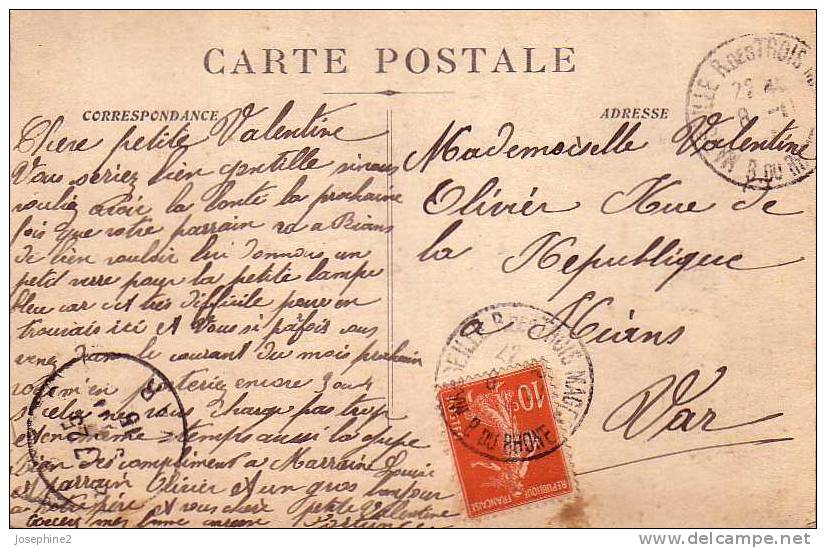 CARTE POSTALE
CORRESPONDANCE
Chere petite Valentine
Vous seriez bien gentille si vous
vouliez avoir la bonté la prochaine
fois que votre parrain va a Rians
de bien vouloir lui donner un
petit verre pour la petite lampe
bleu car c'et tres difficile pour en
trouvais ici et Vous si parfois vous
venez dans le courant du mois prochain
m'en porteriez encore 3 ou 4
si cela ne vous charge pas trop
et en meme temps aussi la
bien des compliment a Marraine Louise
et parrain Olivier et un gros bonjour
a votre père et vous chere petite Valentine
ADRESSE
Mademoiselle Valentine
Olivier Rue de
la Republique
a Rians
Var
MARSEILLE R. DES TROIS MA
B. DU RH
MARSEILLE R. DES TROIS MAG
B. DU RHONE
10c
REPUBLIQUE FRANÇAISE
Josephine2
www.delcampe.net